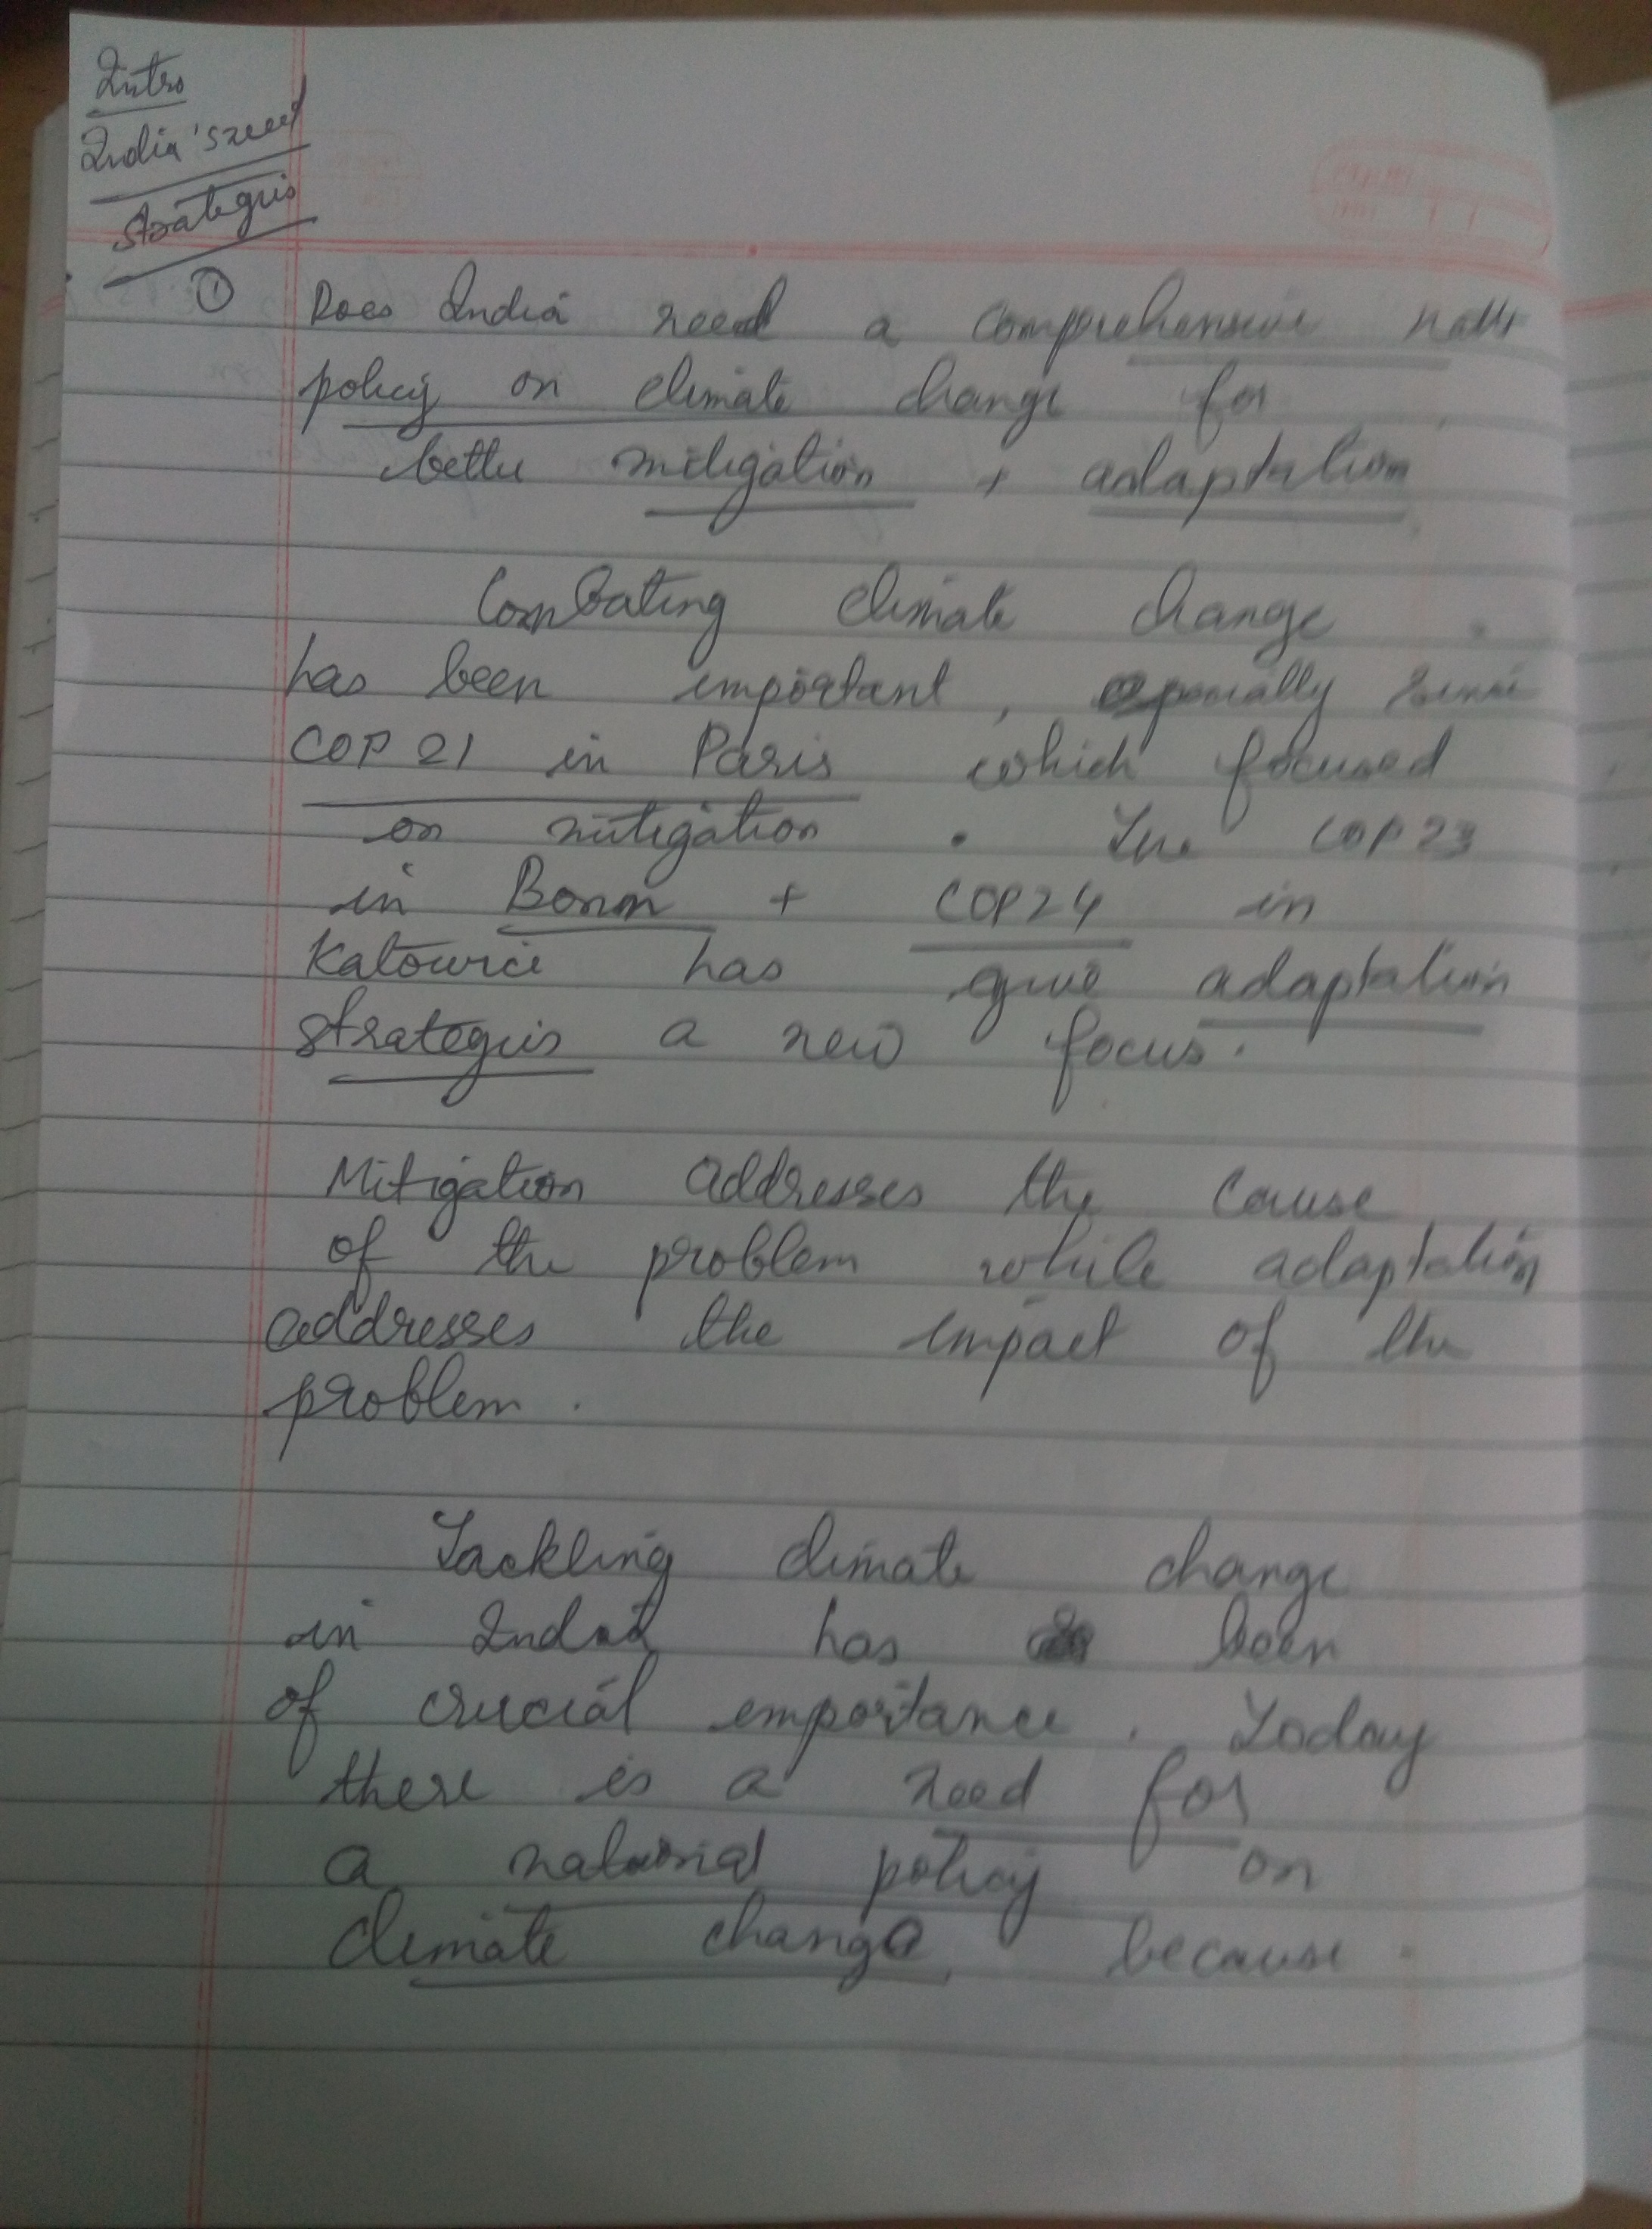 Intro
India's need
Strategies
① Does India need a comprehensive natl
policy on climate change for
better mitigation + adaptation
Combating climate change
has been important, especially since
COP 21 in Paris which focused
on mitigation. The COP23
in Bonn + COP24 in
Katowice has give adaptation
strategies a new focus.
Mitigation addresses the cause
of the problem while adaptation
addresses the impact of the
problem.
Tackling climate change
in India has been
of crucial importance. Today
there is a need for
a national policy on
climate change, because